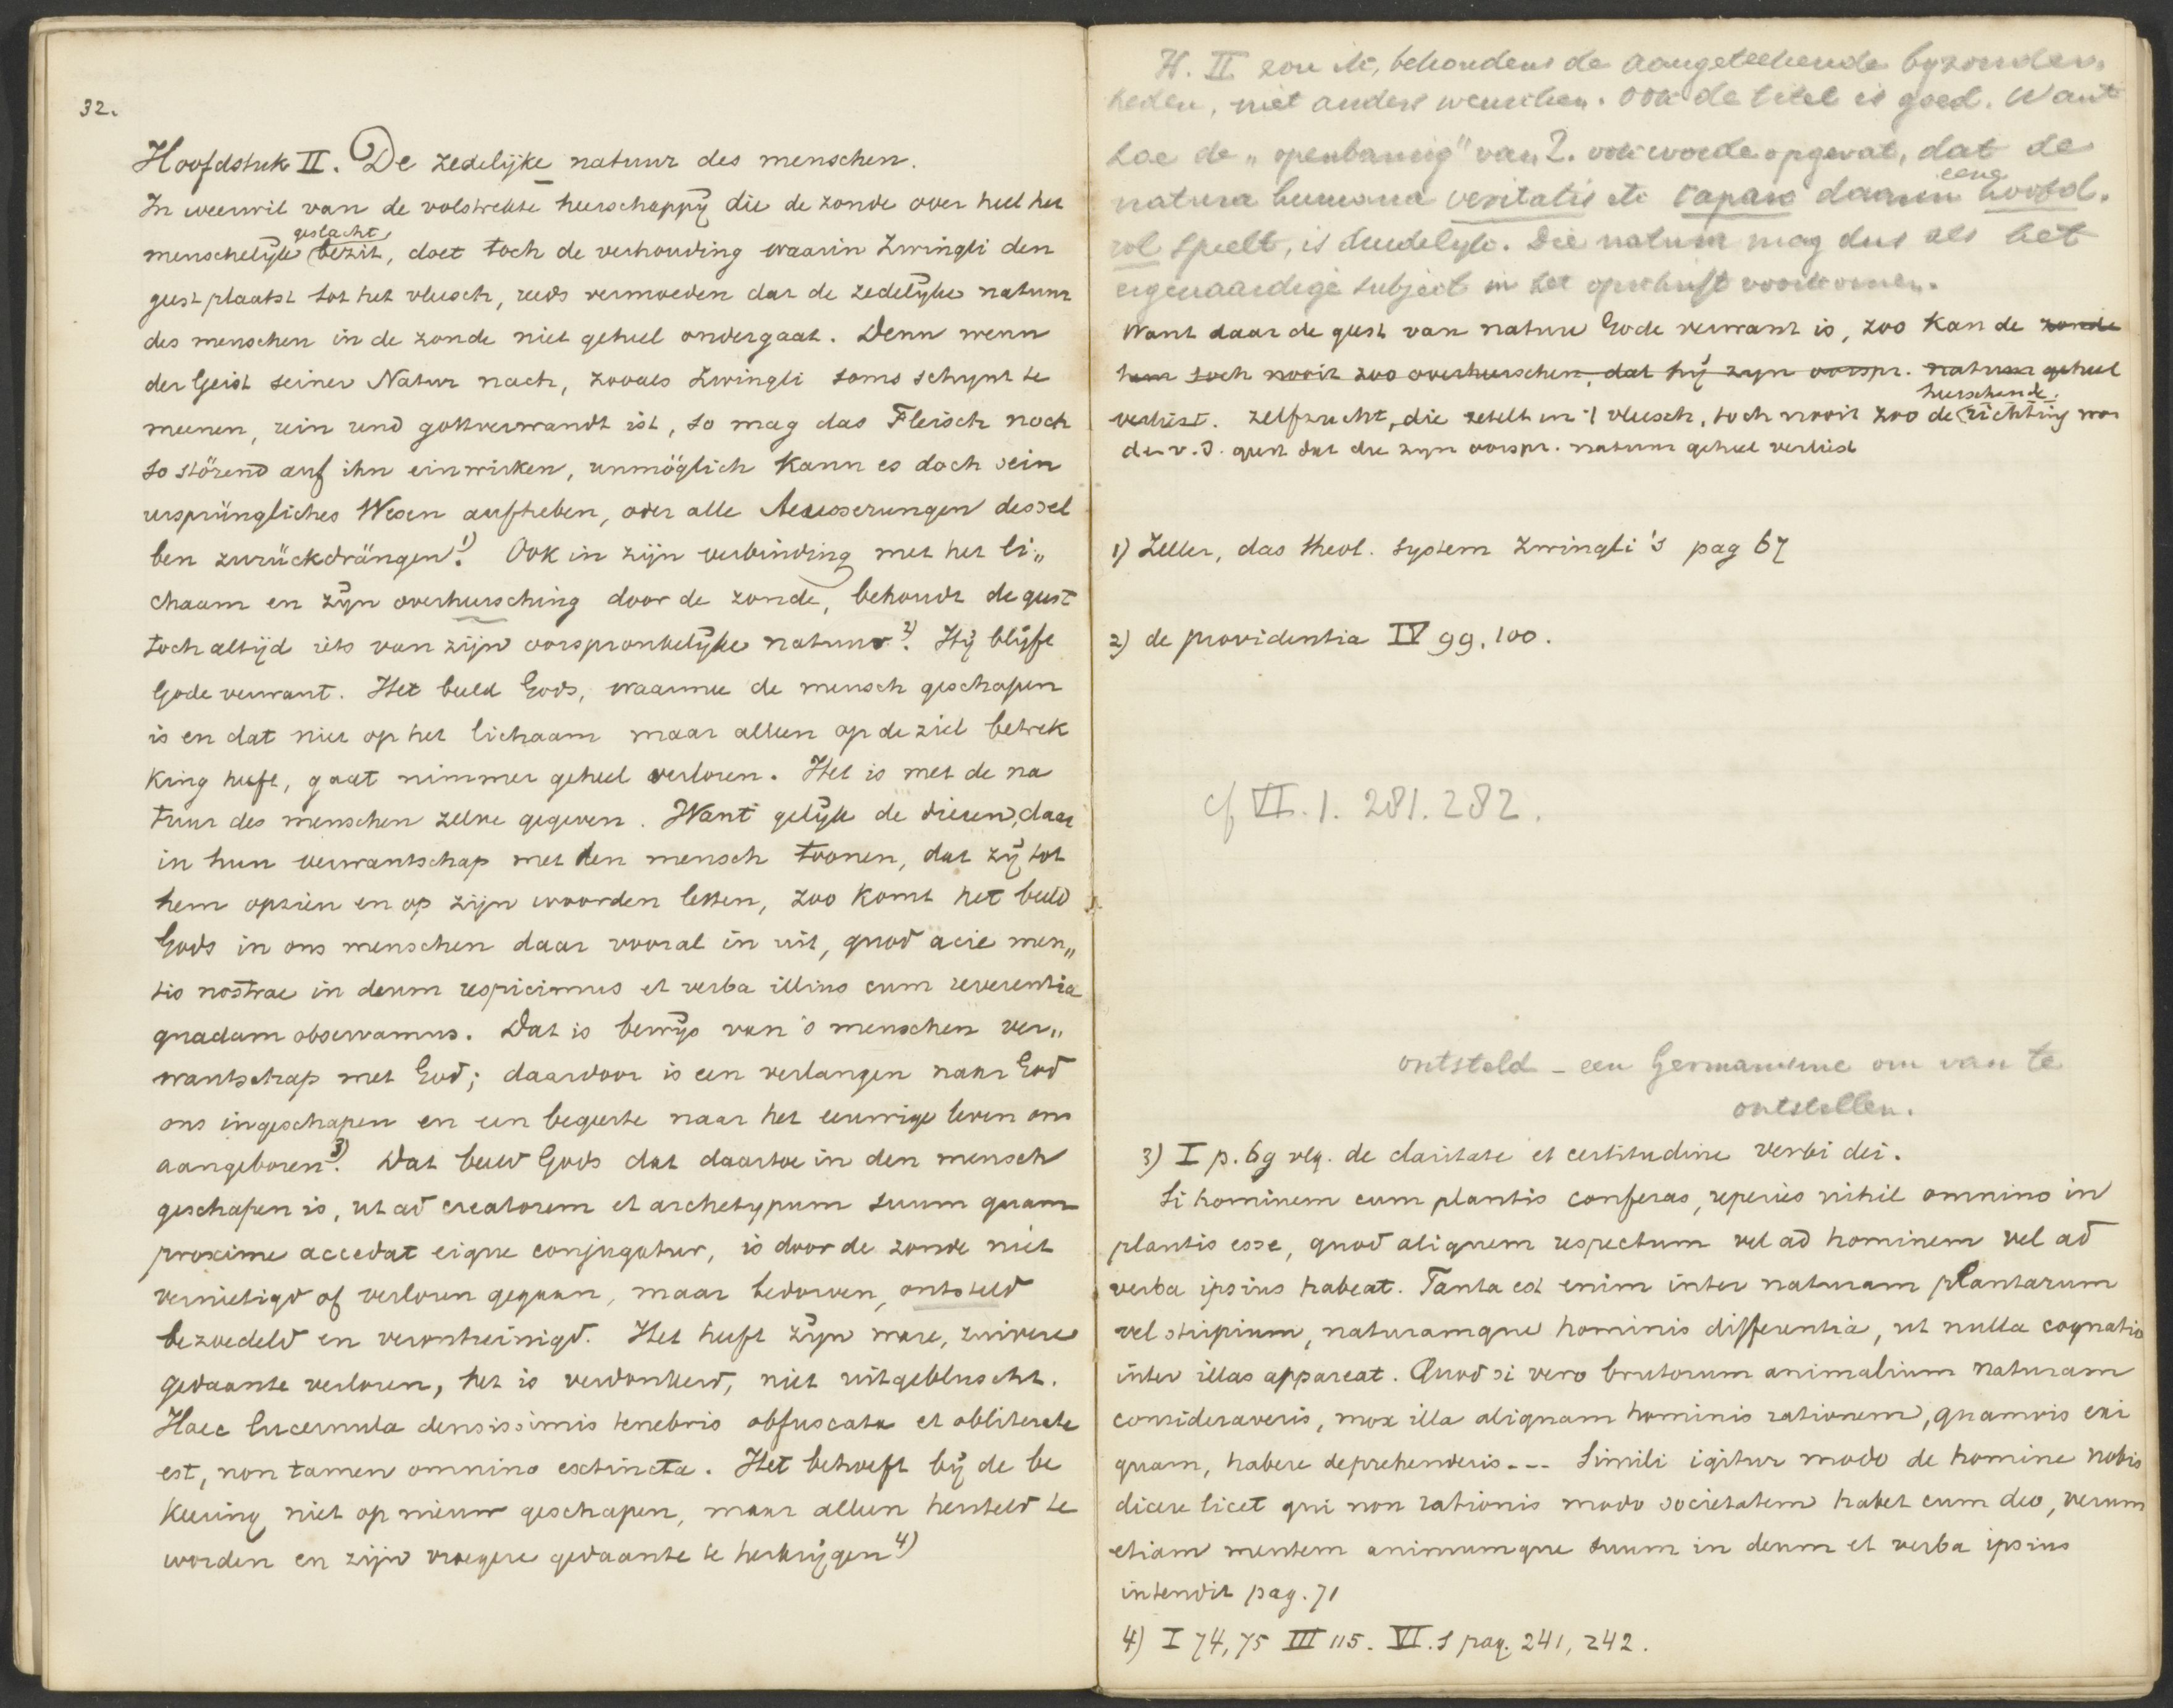 32.
Hoofdstuk II. De zedelijke natuur des menschen.
In weerwil van de volstrekte heerschappij die de zonde over heel het
geslacht
menschelijk bezit, doet toch de verhouding waarin Zwingli den
geest plaatst tot het vleesch, reeds vermoeden dat de zedelijke natuur
des menschen in de zonde niet geheel ondergaat. Denn wenn
der Geist seiner Natur nach, zooals Zwingli soms schijnt te
meenen, rein und gottverwandt ist, so mag das Fleisch noch
so störend auf ihn einwirken, unmöglich kann es doch sein
ursprüngliches Wesen aufheben, oder alle Aeusserungen dessel
ben zurückdrängen.1) Ook in zijn verbinding met het li„
chaam en zijn overheersching door de zonde, behoudt de geest
toch altijd iets van zijn oorspronkelijke natuur.2) Hij blijft
Gode verwant. Het beeld Gods, waarmee de mensch geschapen
is en dat niet op het lichaam maar alleen op de ziel betrek
king heeft, gaat nimmer geheel verloren. Het is met de na
tuur des menschen zelve gegeven. Want gelijk de dieren, daar
in hun verwantschap met den mensch toonen, dat zij tot
hem opzien en op zijn woorden letten, zoo komt het beeld
Gods in ons menschen daar vooral in uit, quod acie men„
tis nostrae in deum respicimus et verba illius cum reverentia
quadam observamus. Dat is bewijs van 's menschen ver„
wantschap met God; daardoor is een verlangen naar God
ons ingeschapen en een begeerte naar het eeuwige leven ons
aangeboren.3) Dat beeld Gods dat daartoe in den mensch
geschapen is, ut ad creatorem et archetypum suum quam
proxime accedat eique conjugatur, is door de zonde niet
vernietigd of verloren gegaan, maar bedorven, ontsteld
bezoedeld en verontreinigd. Het heeft zijn ware, zuivere
gedaante verloren, het is verdonkerd, niet uitgebluscht.
Haec lucernula densissimis tenebris obfuscata et obliterata
est, non tamen omnino exstincta. Het behoeft bij de be
keering niet op nieuw geschapen, maar alleen hersteld te
worden en zijn vroegere gedaante te herkrijgen 4)
H. II zou ik, behoudens de aangeteekende byzonder.
heden, niet anders wenschen. Ook de titel is goed. Want
hoe de „openbaring" van Z. ook worde opgevat, dat de
eene
natura humana veritatis etc capax daarin hoofd.
rol speelt, is duidelyk. Die natuur mag dus als het
eigenaardige subject in het opschrift voorkomen.
Want daar de geest van nature Gode verwant is, zoo kan de zonde
hem toch nooit zoo overheerschen, dat hij zijn oorspr. natuur geheel
heerschende
verliest. zelfzucht, die zetelt in 't vleesch, toch nooit zoo de richting wor
den v. d. geest dat die zijn oorspr. natuur geheel verliest
1) Zeller, das theol. System Zwingli's pag 67
2) de providentia IV 99. 100.
cf VI. 1. 281. 282.
ontsteld - een Germanisme om van te
ontstellen.
3) I p. 69 vlg. de claritate et certitudine verbi dei.
Si hominem cum plantis conferas, reperies nihil omnino in
plantis esse, quod aliquem respectum vel ad hominem vel ad
verba ipsius habeat. Tanta est enim inter naturam plantarum
vel stirpium, naturamque hominis differentia, ut nulla cognatio
inter illas appareat. Quod si vero brutorum animalium naturam
consideraveris, mox illa aliquam hominis rationem, quamvis exi
guam, habere deprehenderis --- Simili igitur modo de homine nobis
dicere licet qui non rationis modo societatem habet cum deo, verum
etiam mentem animumque suum in deum et verba ipsius
intendit pag. 71
4) I 74, 75 III 115. VI. 1 pag. 241, 242.